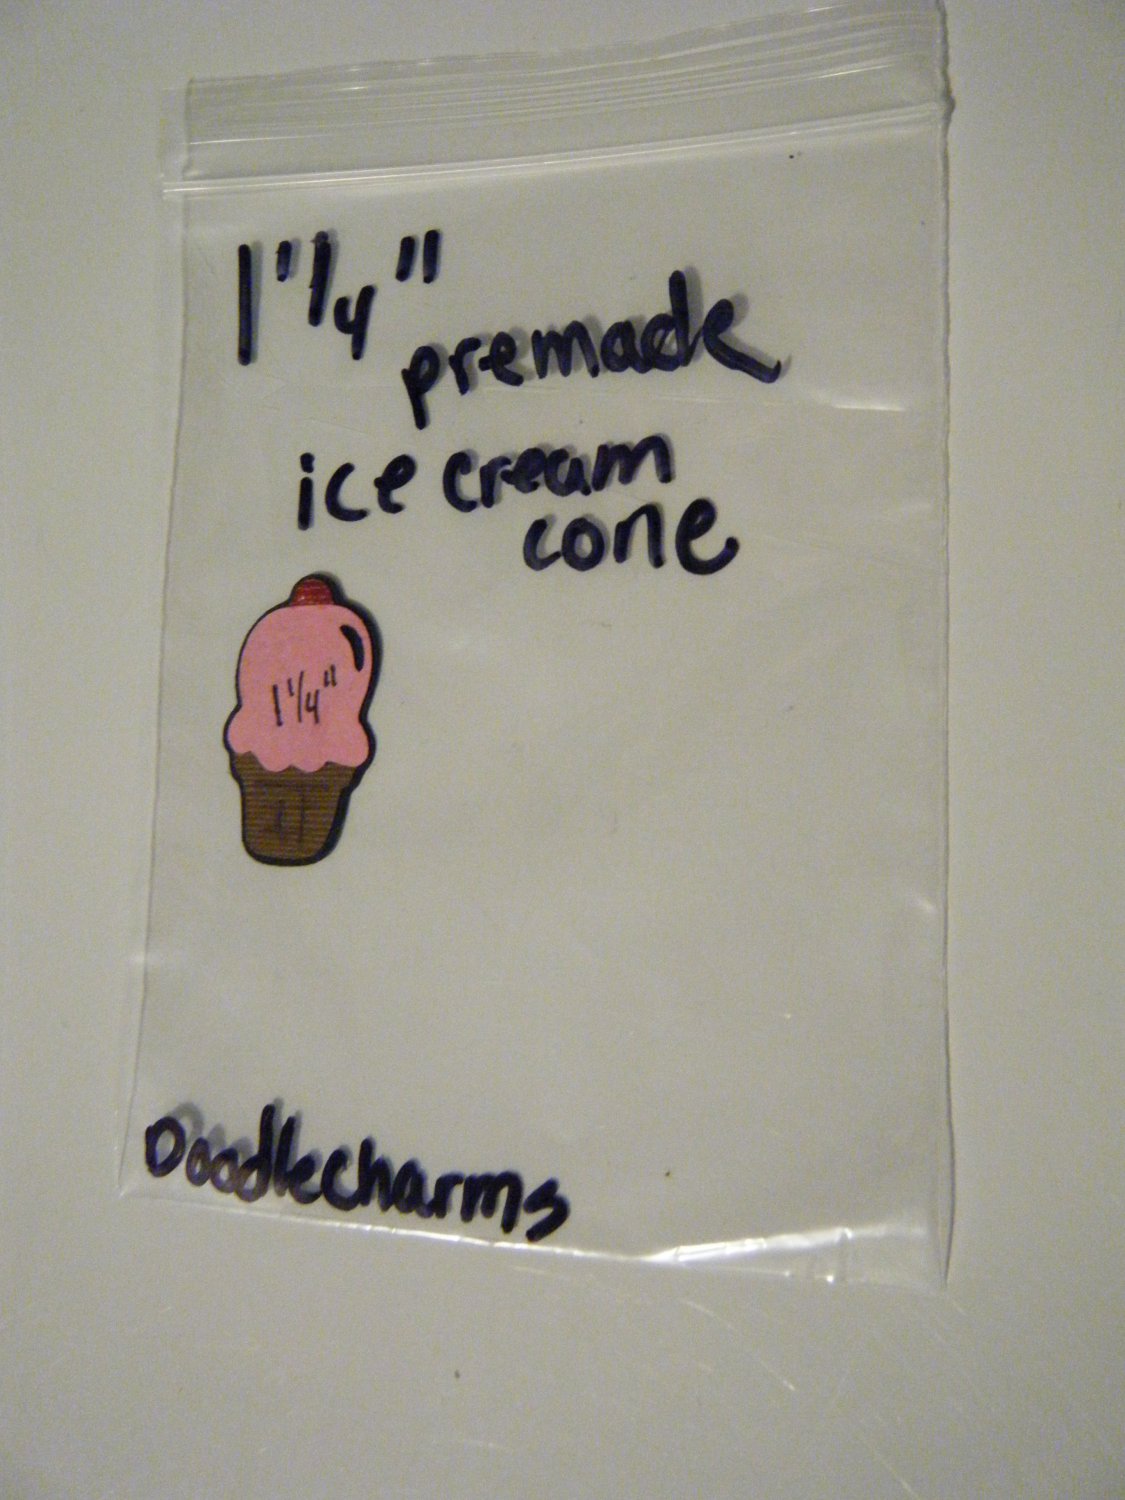 1 1/4"
premade
ice cream
cone
1 1/4"
Doodlecharms